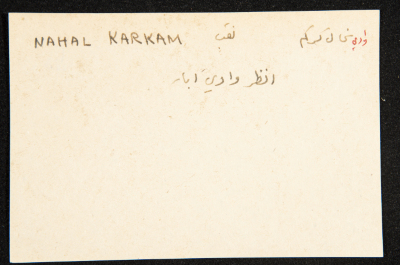 NAHAL KARKAM نقب وادي نحال كركم
انظر وادي ابار